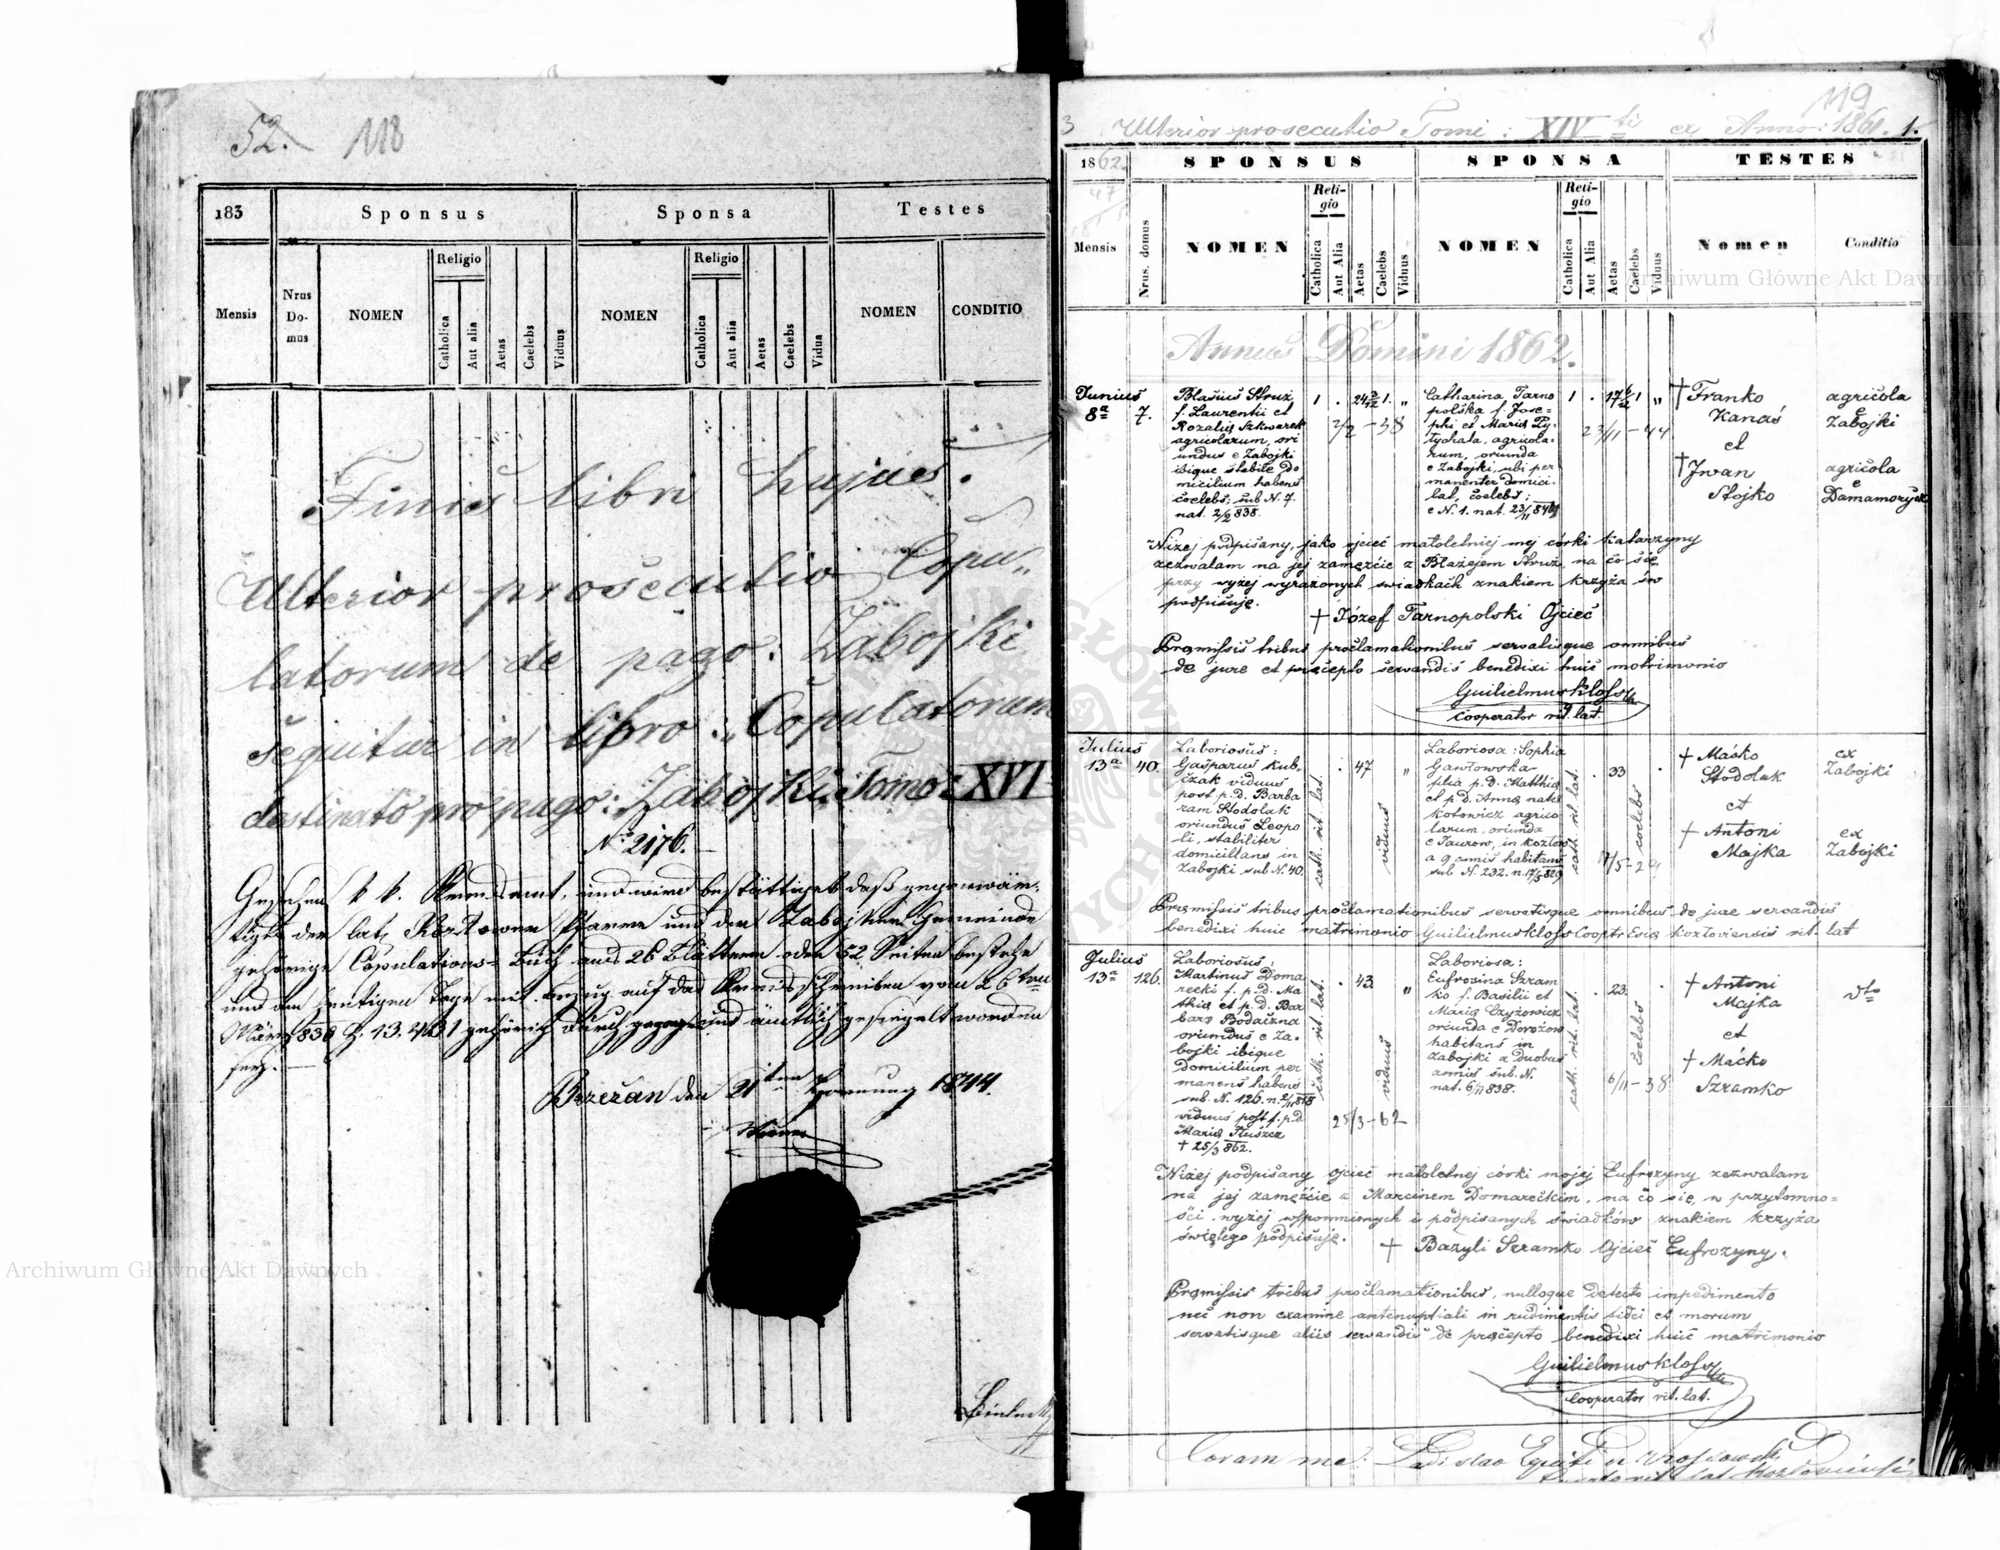 52. 118
183
Sponsus
Sponsa
Testes
Mensis
Nrus Do-mus
NOMEN
Religio
Catholica
Aut alia
Aetas
Caelebs
Viduus
NOMEN
Religio
Catholica
Aut alia
Aetas
Caelebs
Vidua
NOMEN
CONDITIO
Finis libri hujus.
Ulterior prosecutio Copu„
latorum de pago: Zabojki
sequitur in libro: „Copulatorum
destinato pro pago: Zabojki Tomo: XVI
No 2176.
Gesehen k. k. Kreisamt, und wird bestättiget daß gegenwär-
tiges der lat. Kozlower Pfarre und der Zabojker Gemeinde
gehörige Copulations-Buch aus 26 Blättern oder 52 Seiten bestehe
und am heutigen Tage mit Bezug auf das Kreisschreiben vom 26ten
März 836 Z. 13.431 gehörig durchgezogen und ämtlich gesiegelt worden
sey.
Brzežan den 21ten Hornung 1844.
Archiwum Główne Akt Dawnych
119
3 Ulterior prosecutio Tomi: XIVti ex Anno: 1861. 1.
1862
47
SPONSUS
SPONSA
TESTES
Mensis
Nrus. domus
NOMEN
Religio
Catholica
Aut Alia
Aetas
Caelebs
Viduus
NOMEN
Religio
Catholica
Aut Alia
Aetas
Caelebs
Viduus
Nomen
Conditio
Archiwum Główne Akt Dawnych
Annus Domini 1862.
Junius
8a 7.
Blasius Struz
f. Laurentii et
Rozalia Szkwarek
agricolarum, ori
undus e Zabojki
ibique stabile Do
micilium habens
coelebs; sub N. 7.
nat. 2/2 838.
1 . 24 1. „
2/2 - 38
Catharina Tarno
polska f. Jose=
phi et Maria Py-
tychata, agricola-
rum, oriunda
e Zabojki, ubi per
manenter domici-
lat, coelebs;
e N. 1. nat. 23/11 844
1 . 17 1 „
23/11 - 44
† Franko
Kanas
et
† Iwan
Stojko
agricola
e
Zabojki
agricola
e
Damamorycz
Niżej podpisany, jako ojciec małoletniej mej córki Katarzyny
zezwalam na jej zamęzcie z Błażejem Struz, na co się
przy wyżej wyrażonych świadkach znakiem krzyża św
podpisuję.
† Józef Tarnopolski Ojciec
Praemissis tribus proclamationibus servatisque omnibus
de jure et praecepto servandis benedixi huic matrimonio
Guilielmus Kloss
cooperator rit. lat.
Julius
13a 40.
Laboriosus:
Gasparus Kub-
czak viduus
post p. d. Barba
ram Stodolak
oriundus Leopo
li, stabiliter
domicilians in
Zabojki sub N. 40.
cath. rit. lat.
. 47 „
viduus
Laboriosa: Sophia
Gawłowska
filia p. d. Matthia
et p. d. Anna nata
Kotowicz agrico
larum, oriunda
e Taurow, in Kozłow
a 9 annis habitans
sub N. 232. n. 17/5 829
cath. rit. lat.
. 33 .
coelebs
17/5 - 29
† Maśko
Stodolak
et
† Antoni
Majka
ex
Zabojki
ex
Zabojki
Praemissis tribus proclamationibus servatisque omnibus de jure servandis
benedixi huic matrimonio Guilielmus Kloss Cooptr Ecia Kozłoviensis rit. lat
Julius
13a 126.
Laboriosus:
Martinus Doma
recki f. p. d. Ma
thia et p. d. Bar
bara Bodaczna
oriundus e Za-
bojki ibique
domicilium per
manens habens
sub. N. 126. n. 2/11 818
viduus post f. p. d.
Maria Słuszcz
† 25/3 862.
cath. rit. lat.
. 43 „
viduus
25/3 - 62
Laboriosa:
Eufrosina Szram
ko f. Basilii et
Maria Czyżowicz
oriunda e Dorożow
habitans in
Zabojki a duobus
annis sub. N.
nat. 6/11 838.
cath. rit. lat.
. 23. .
coelebs
6/11 - 38
† Antoni
Majka
et
† Maćko
Szramko
dto
Niżej podpisany ojciec małoletnej córki mojej Eufrozyny zezwalam
na jej zamęście z Marcinem Domareckim, na co się, w przytomno=
ści wyżej wspomnionych i podpisanych świadków znakiem krzyża
świętego podpisuję. † Bazyli Szramko Ojciec Eufrozyny.
Praemissis tribus proclamationibus, nulloque detecto impedimento
nec non examine antenuptiali in rudimentis fidei et morum
servatisque aliis servandis de praecepto benedixi huic matrimonio
Guilielmus Kloss
Cooperator rit. lat.
Coram me: Ladislao